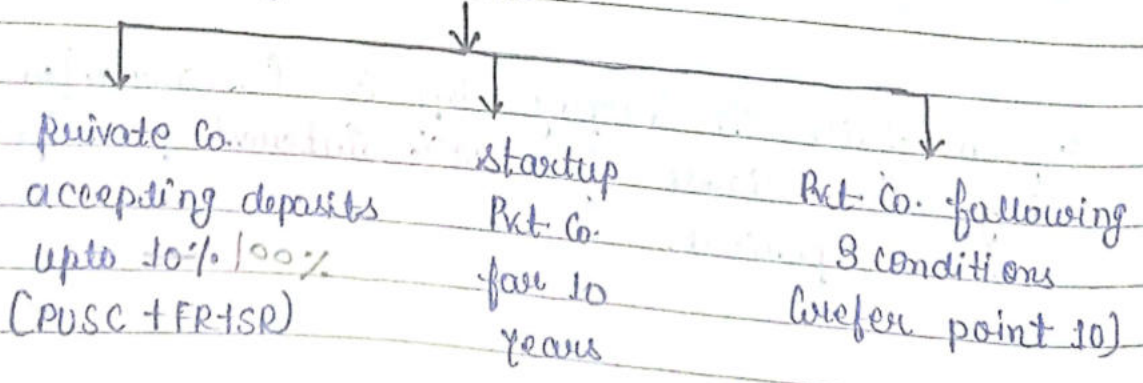 Private Co.
accepting deposits
upto 10% 100%
(PUSC + FR+SR)
startup
Pvt. Co.
for 10
years
Pvt. Co. following
3 conditions
(refer point 10)